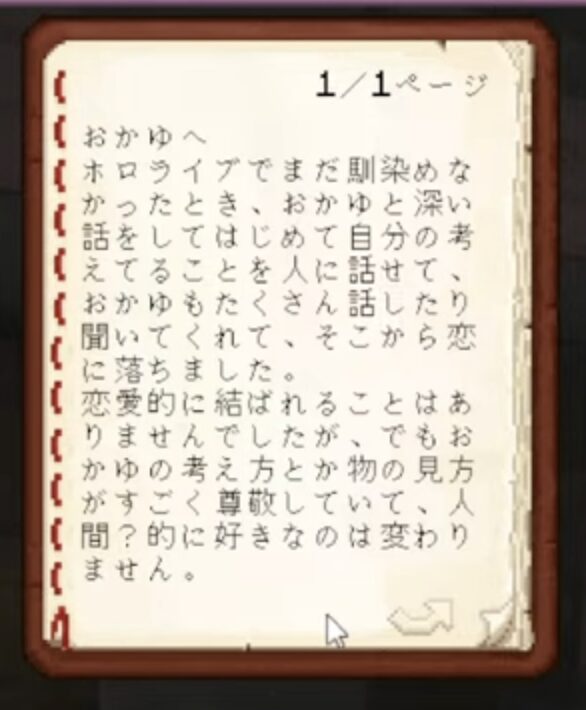 1/1ページ
おかゆへ
ホロライブでまだ馴染めな
かったとき、おかゆと深い
話をしてはじめて自分の考
えてることを人に話せて、
おかゆもたくさん話したり
聞いてくれて、そこから恋
に落ちました。
恋愛的に結ばれることはあ
りませんでしたが、でもお
かゆの考え方とか物の見方
がすごく尊敬していて、人
間？的に好きなのは変わり
ません。